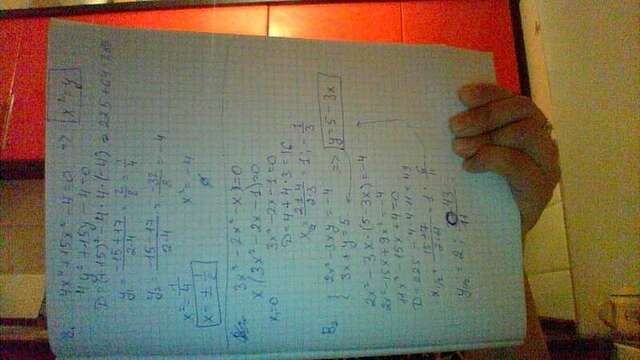 4x⁴+15x²-4=0 ⇒ x²=y
4y²+15y-4=0
D=(+15)²-4·4·(-4)=225+64=289
y₁ = (-15+17)/(2·4) = 2/8 = 1/4
y₂ = (-15-17)/(2·4) = -32/8 = -4
x² = 1/4 x² = -4
x = ± 1/2 ∅
3x³-2x²-x=0
x(3x²-2x-1)=0
x₁=0 3x²-2x-1=0
D=4+4·3=16
= (2±4)/(2·3) = 1; -1/3
{ 2x²-3xy=-4
3x+y=5 ⇒ y=5-3x
2x²-3x·(5-3x)=-4
2x²-15x+9x²=-4
11x²-15x+4=0
D=225-4·4·11=49